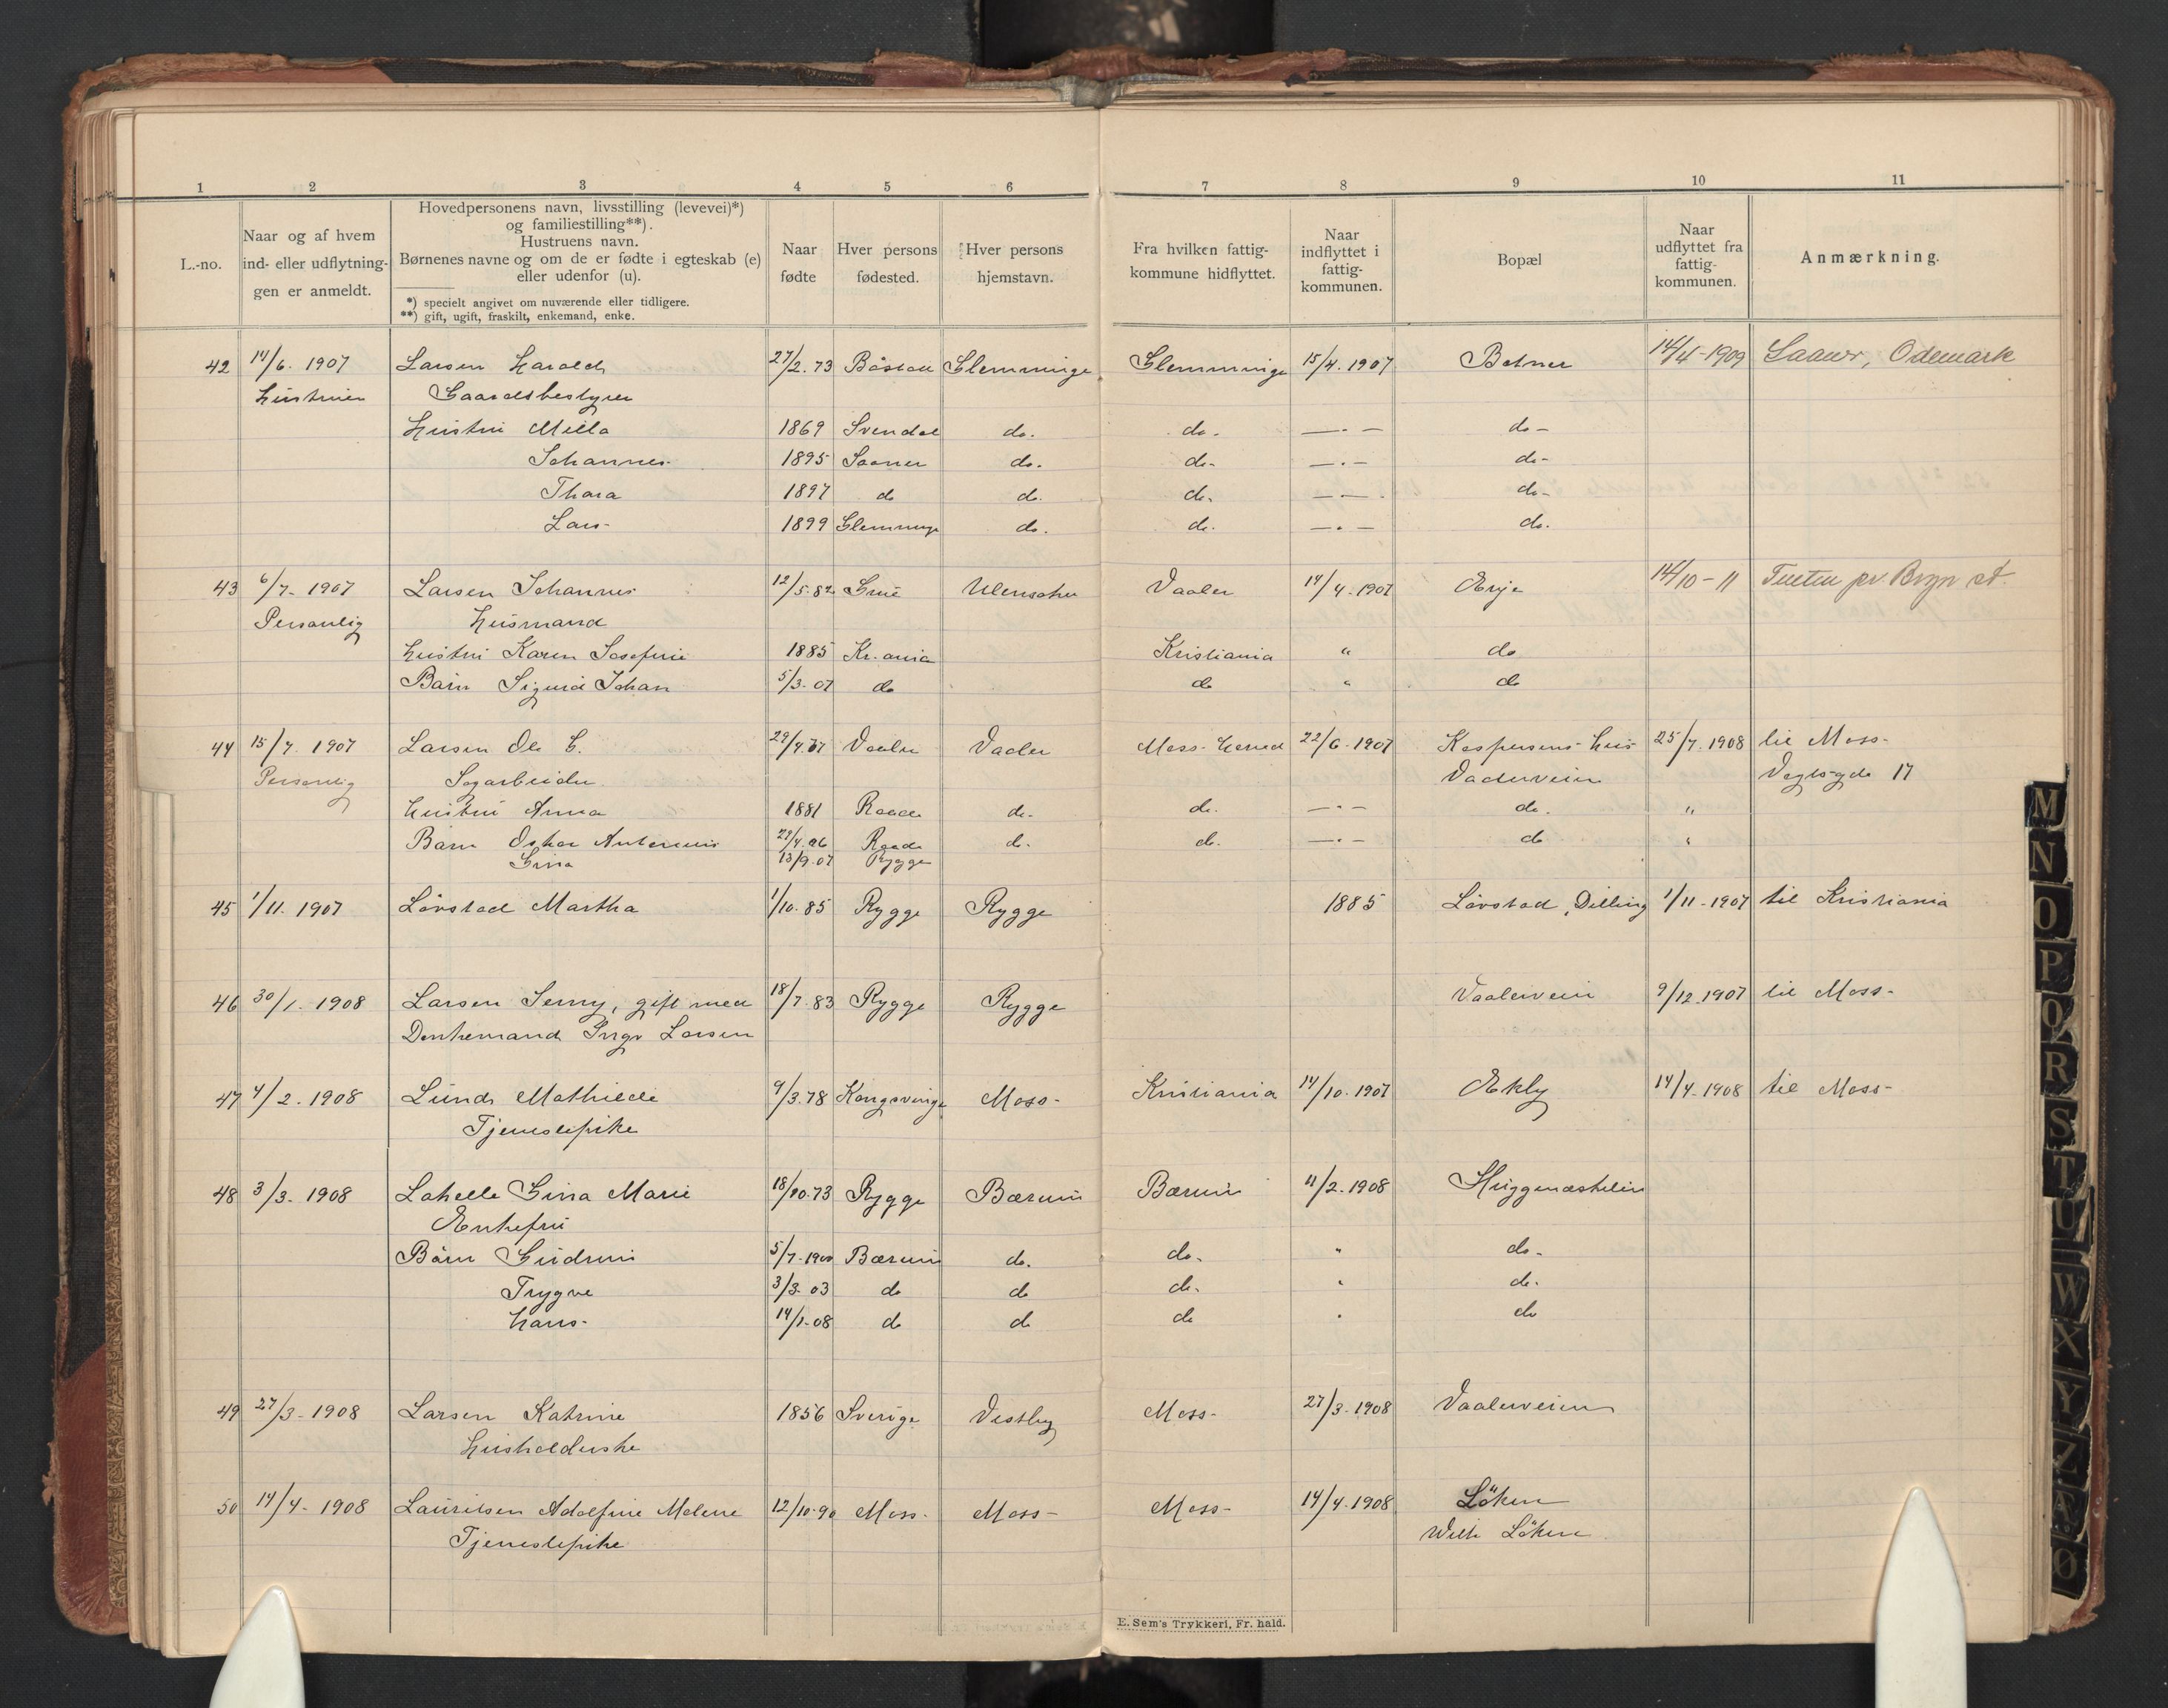 1 2 3 4 5 6 7 8 9 10 11
L.-no.
Naar og af hvem
ind- eller udflytnin-
gen er anmeldt.
Hovedpersonens navn, livsstilling (levevei)*)
og familiestilling**).
Hustruens navn.
Børnenes navne og om de er fødte i egteskab (e)
eller udenfor (u).
*) specielt angivet om nuværende eller tidligere.
**) gift, ugift, fraskilt, enkemand, enke.
Naar
fødte
Hver persons
fødested.
Hver persons
hjemstavn.
Fra hvilken fattig-
kommune hidflyttet.
Naar
indflyttet i
fattig-
kommunen.
Bopæl
Naar
udflyttet fra
fattig-
kommunen.
Anmærkning.
42 14/6. 1907 Larsen Harald 27/2. 73 Glemminge Glemminge 15/4. 1907 14/4-1909
Hustruen Gaardsbestyrer
Hustru Milla 1869 Svendal do. do. —"— do-
Johannes 1895 Saaner do. do- —"— do-
Thora 1897 do do. do. —"— do-
Lars- 1899 Glemminge do. do. —"— do.
43 6/7- 1907 Larsen Johannes 12/5-82 Grue Ullensaker Vaaler 14/4-1907 Eije 14/10-11
Personlig Husmand
Hustru Karen Josefine 1885 Kr.ania Kristiania " do
Barn Sigurd Johan 5/3-07 do do " do
44 15/7. 1907 Larsen Ole C. Vaaler Vaaler Moss- Herred 22/6-1907 Kaspersens-hus 25/7.1908 til Moss-
Personlig Sagarbeider Vaalerveien 17
Hustru Anna 1881 Raade do- do. —"— do. "
Barn Oskar Antonius 29/4.06 Raade do- do. —"— do "
Gina 13/9.07 Rygge
45 1/11. 1907 Løvstad Martha 1/10. 85 Rygge Rygge 1885 Løvstad, Dilling 1/11-1907 til Kristiania
46 30/1. 1908 Larsen Jenny, gift med 18/7.83 Rygge Rygge Vaalerveien 9/12.1907 til Moss-
Larsen
47 4/2. 1908 Lund Mathilde 9/3.78 Kongsvinge Moss- Kristiania 14/10.1907 Ekly 14/4-1908 til Moss-
Tjenestepike
48 3/3. 1908 Lakelle Gina Marie 18/10.73 Rygge Bærum Bærum 11/2.1908
Enkefru
Børn Gudrun 5/7-1900 Bærum do. do. " do.
Trygve 3/3-03 do do do. " do.
Hans- 14/1-08 do do do " do
49 27/3-1908 Larsen Katrine 1856 Sverige Vestby Moss- 27/3-1908 Vaalerveien
Husholderske
50 14/4- 1908 Lauritsen Adolfine Malene 12/10-90 Moss- Moss- Moss- 14/4.1908 Løken
Tjenestepike Løken
E. Sem's Trykkeri, Fr. hald.
M
N
O
P
Q
R
S
T
U
W
X
Y
Z
Ø